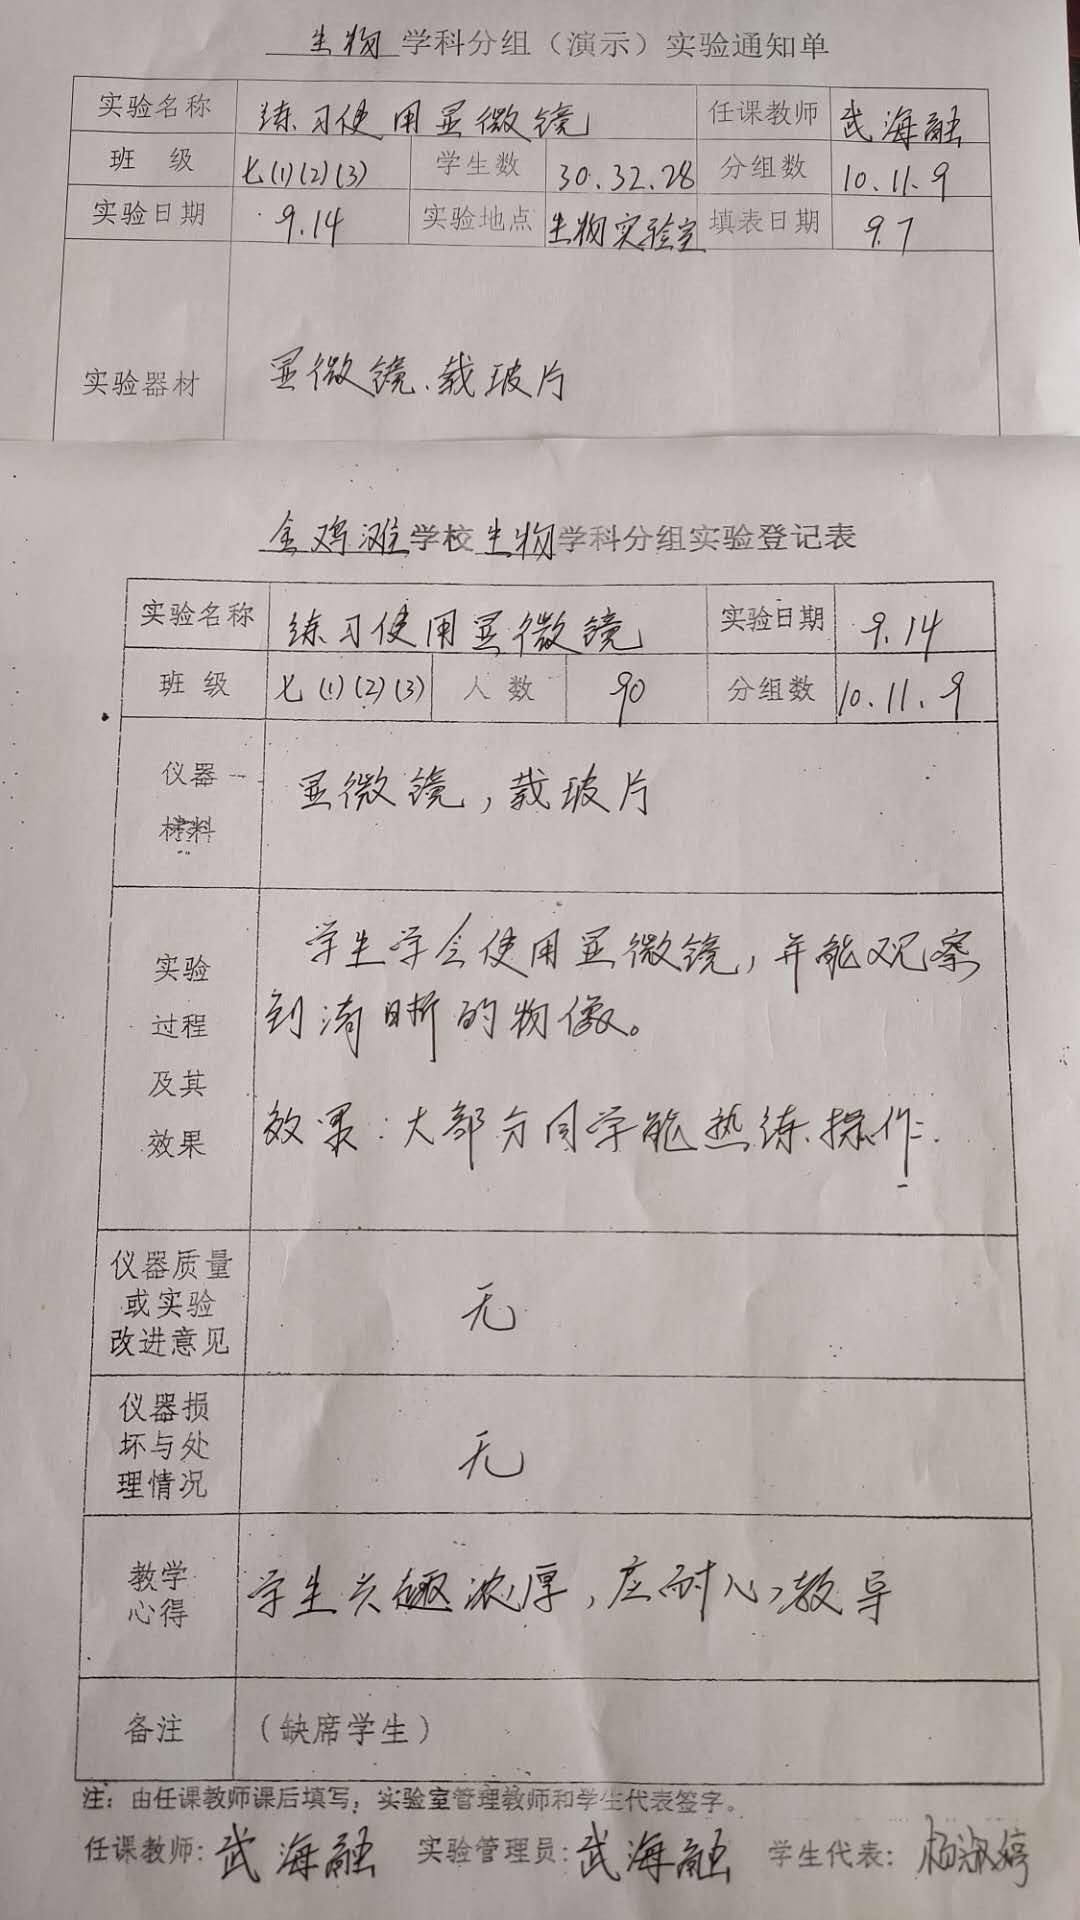 生物 学科分组（演示）实验通知单
实验名称 练习使用显微镜 任课教师 武海融
班 级 七(1)(2)(3) 学生数 30.32.28 分组数 10.11.9
实验日期 9.14 实验地点 生物实验室 填表日期 9.7
实验器材 显微镜、载玻片
金鸡滩学校生物学科分组实验登记表
实验名称 练习使用显微镜 实验日期 9.14
班 级 七(1)(2)(3) 人 数 90 分组数 10.11.9
仪器
材料
显微镜，载玻片
实验
过程
及其
效果
学生学会使用显微镜，并能观察
到清晰的物像。
效果：大部分同学能熟练操作.
仪器质量
或实验
改进意见
无
仪器损
坏与处
理情况
无
教学
心得
学生兴趣浓厚，应耐心教导
备注 （缺席学生）
注：由任课教师课后填写；实验室管理教师和学生代表签字。
任课教师：武海融 实验管理员：武海融 学生代表：杨淑婷